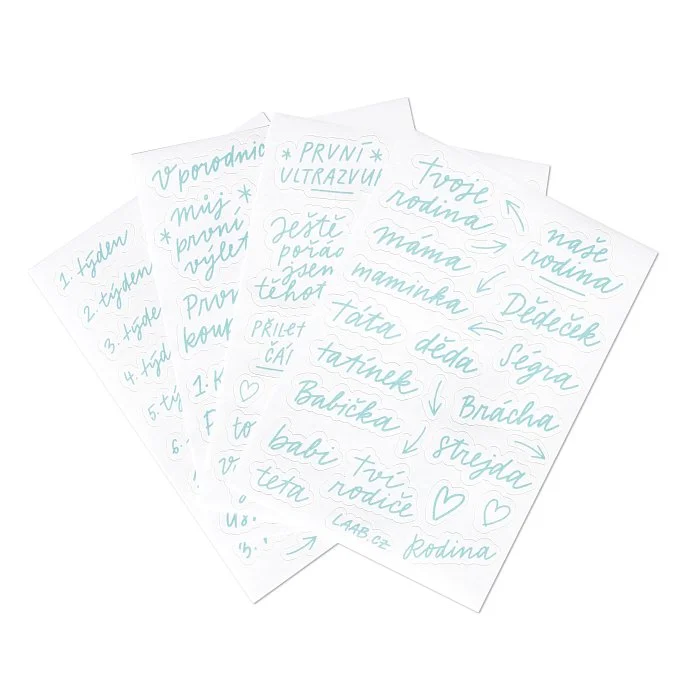 1. týden
2. týden
3. týde
4. týd
5. tý
6.
V porodnic
* můj *
první
výlet
Prvn
koup
1. K
* PRVNÍ *
ULTRAZVU
Ještě
pořád
jsem
těhot
PŘILET
ČÁ
to
v
3.
tvoje
rodina
naše
rodina
máma
maminka
Dědeček
táta
děda
Ségra
tatínek
Brácha
Babička
strejda
babi
tví
rodiče
teta
LAAB.CZ
Rodina